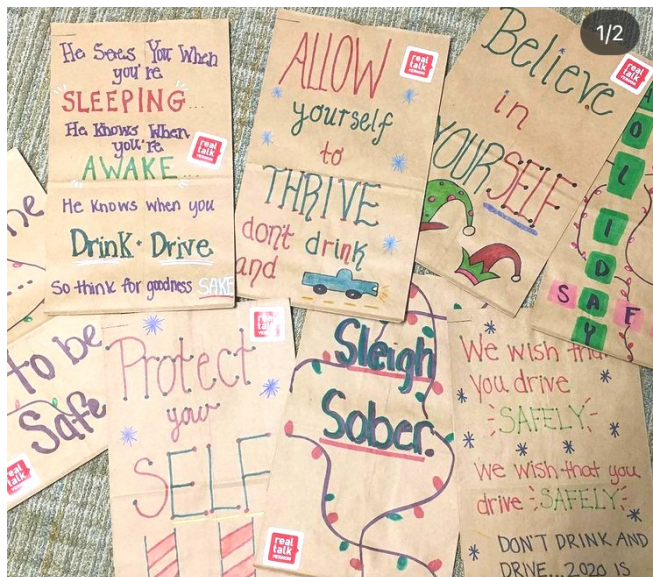 1/2
He Sees You When
you're
SLEEPING...
He Knows When
you're
AWAKE...
He knows when you
Drink + Drive
So think for goodness SAKE
real
talk
ALLOW
yourself
to
THRIVE
dont drink
and
real
talk
Believe
in
YOURSELF
real
talk
O
L
I
D
SAF
Y
he
...
to be
Safe
real
talk
Protect
your
SELF
real
talk
Sleigh
Sober.
real
talk
We wish that
you drive
SAFELY
We wish that you
drive SAFELY
DON'T DRINK AND
DRIVE... 2020 IS